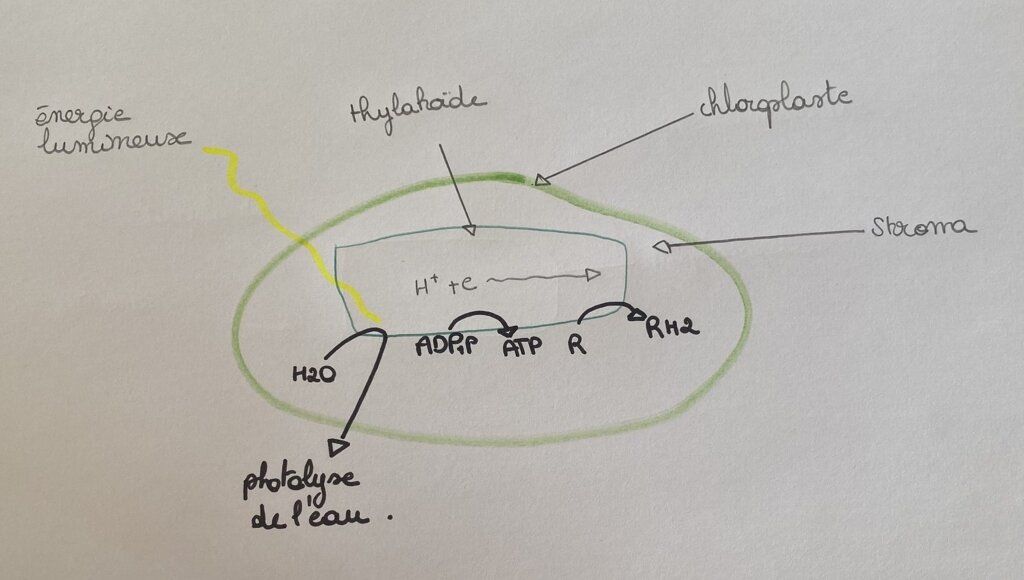 énergie
lumineuse
thylakoïde
chloroplaste
Stroma
H⁺ + e
H2O
ADP+P
ATP
R
RH2
photolyse
de l'eau.